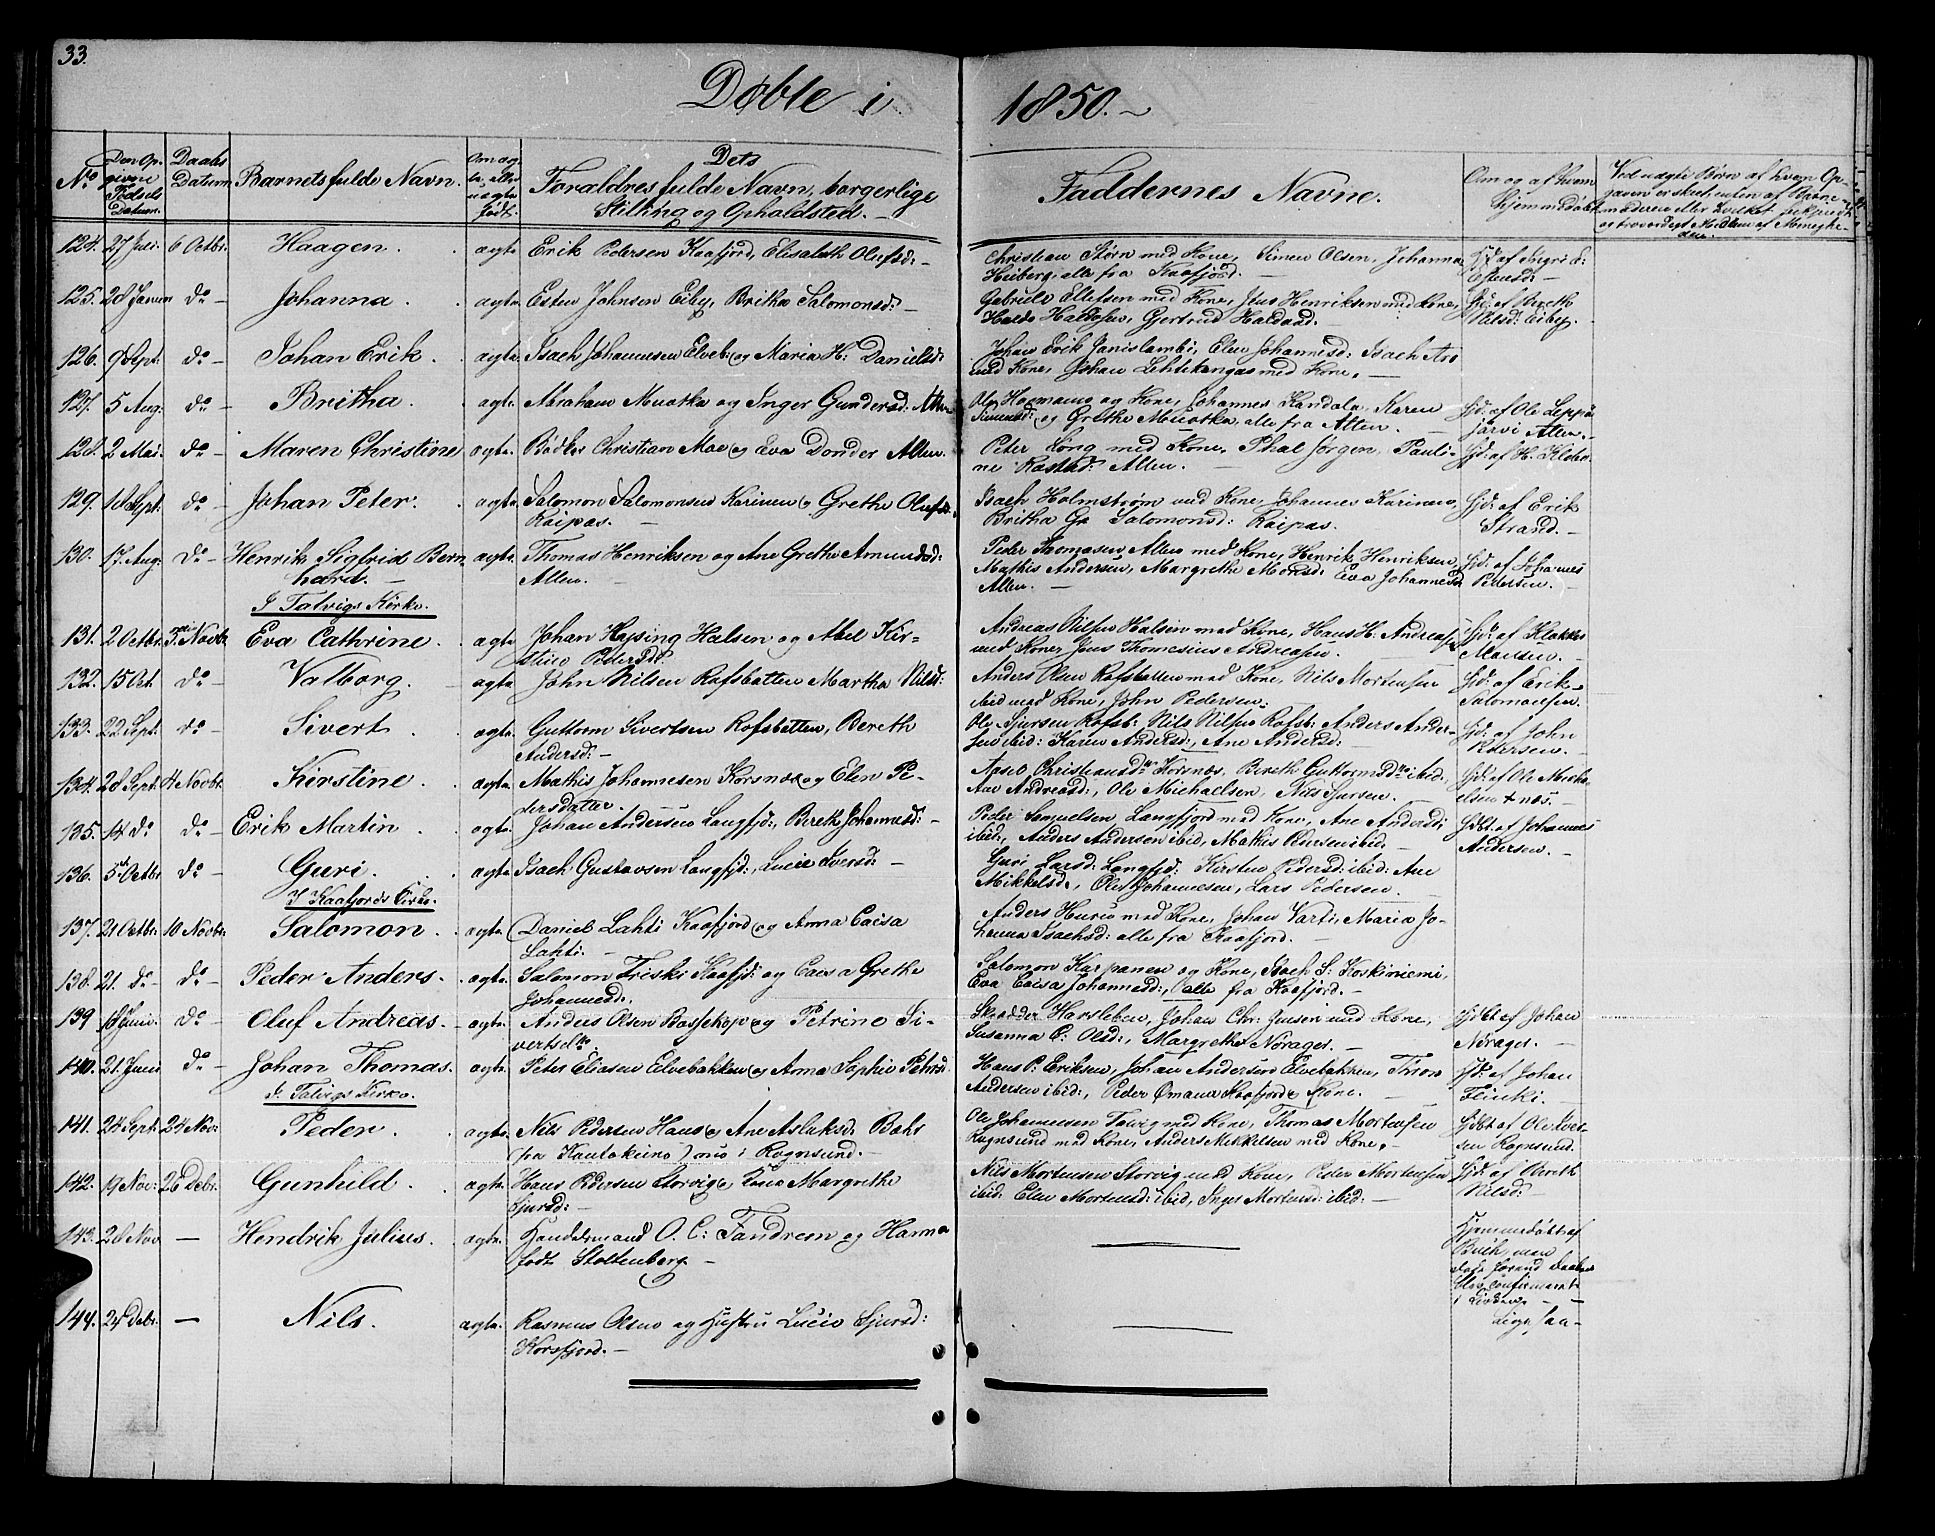 33.
Døbte i 1850.
No. Den Opgivne Fødsels Datum. Daabs Datum. Barnets fulde Navn. Om ægte, eller uægte født. Dets Forældres fulde Navn, borgerlige Stilling og Opholdsted. Faddernes Navne. Om og af hvem hjemmedøbt
124. 27 Juli. 6 Octbr. Haagen. ægte Erik Pedersen Kaafjord, Elisabeth Olufsd: Christian Størn med Kone, Simen Olsen, Johanna
Heiberg, alle fra Kaafjord. Hjd. af Ingrid
125. 28 Januar do Johanna. ægte. Esten Johnsen Eiby, Britha Salomonsd: Gabriel Ellefsen med Kone, Jens Henriksen med Kone,
Gjertrud Haldaad. Hjd: af Bereth
Nilsd: Eiby.
126. 9 Sept. do Johan Erik. ægte Isach Johannesen Elveb: og Maria H: Danielsd: Johan Erik Janislambi, Elen Johannesd: Isach Aro
med Kone, Johan Lehtikangas med Kone.
127. 5 Aug: do Britha. ægte. Abraham Muotka og Inger Gundersd: Alten Ole Hogmann og Kone, Johannes Kandala, Karen
Simensd: og Grethe Muotka, alle fra Alten. Hjd: af Ole Leppä
järvi Alten.
128. 2 Mai. do Maren Christine ægte. Bødker Christian Moe og Eva Donder Alten. Peter Long med Kone, Phal Jørgen, Pauli-
ne Rastad: Alten. Hjd: af H. Kloba.
129. 18 Sept. do Johan Peter. ægte. Salomon Salomonsen Karinen og Grethe Olufsd:
Raipas. Isach Holmstrøm med Kone, Johannes Karinen,
Britha Gr. Salomonsd: Raipas. Hjd: af Erik
Strand.
130. 17. Aug: do Henrik Sigfrid Bern
hard. ægte. Thomas Henriksen og Ane Grethe Amundsd:
Alten. Peder Thomasen Alten med Kone, Henrik Henriksen,
Mathis Andersen, Margrethe Monsd: Eva Johannesd
Alten. Hjd: af Johannes
Pedersen.
I Talvigs Kirke.
131. 2 Octbr. 3 Novbr Eva Cathrine. ægte Johan Hysing Halsen og Abel Kir-
stine Pedersdt. Andreas Nilsen Halsen med Kone, Hans H. Andreasen
med Kone, Jens Thomesius Andreasen. Hjd: af Klokker
Monsen.
132. 15 Oct. do Valborg. ægte John Nilsen Rafsbotten Martha Nilsd: Anders Olsen Rafsbotten med Kone, Nils Mortensen
ibid med Kone, John Pedersen. Hjd: af Erik
Salomonsen.
133. 22 Sept: do Sivert. ægte. Guttorm Sivertsen Rafsbotten, Bereth
Andersd: Ole Sjursen Rafsb: Nils Nilsen Rafsb: Anders Ander-
sen ibid: Karen Andersd:, Ane Andersd: Hjd: af John
Pedersen.
134. 28 Sept 4 Novbr. Kirstine. ægte. Mathis Johannesen Korsnæs og Elen Pe-
dersdatter. Christiansd: Korsnæs, Bereth Guttormsd: ibid,
Ane Andreasd:, Ole Michaelsen, Nils Sjursen. Hjd: af Ole Micha-
elsen
135. 14 do do Erik Martin. ægte. Johan Andersen Langfjd:, Bereth Johannesd: Peder Samuelsen Langfjord med Kone, Ane Andersd:
ibid:, Anders Andersen ibid, Mathis Pedersen ibid. Hjdbt af Johannes
Andersen.
136. 5 Octbr do Guri. ægte. Isach Gustavsen Langfjd:, Lucie Iversd: Guri Larsd: Langfjd: Kirsten Pedersd: ibid: Ane
Mikkelsd:, Ole Johannesen, Lars Pedersen.
I Kaafjords Kirke.
137. 21 Octbr. 10 Novbr. Salomon. ægte. Daniel Lahti Kaafjord og Anna Caisa
Lahti. Anders Huru med Kone, Johan Varti, Maria Jo-
hanna Isachsd: alle fra Kaafjord.
138. 21. do do Peder Anders. ægte. Salomon Friski Kaafjd: og Caisa Grethe
Johannesd:. Salomon Karpanen og Kone, Isach S. Koskiniemi,
Eva Caisa Johannesd:, alle fra Kaafjord.
139 18 Juni. do Oluf Andreas. ægte. Anders Olsen Bossekop og Petrine Si-
vertsdtr. Skrædder Harsleben, Johan Chr. Jensen med Kone,
Susanna C: Olsd:, Margrethe Norager. Hjdbt af Johan
Norager.
140. 21. Juni do Johan Thomas. ægte. Peter Eliasen Elvebakken og Anna Sophie Petersd Hans P. Eriksen, Johan Andersen Elvebakken, Thron
Andersen ibid:, Peder Omann Kaafjord & Kone. Hjd: af Johan
Finki.
I Talvigs Kirke.
141. 24 Sept: 24 Nov: Peder. ægte. Nils Pedersen Haus og Ane Aslaksd. Bæhr
(fra Kautokeino) nu i Rognsund. Ole Johannesen Talvig med Kone, Thomas Mortensen
Rognsund med Kone, Anders Mikkelsen med Kone. Hjdbt af Ole Iver-
sen Rognsund.
142. 19 Nov: 26 Debr. Gunhild. ægte. Hans Pedersen Storvig & Kone Margrethe
Sjursd: Nils Mortensen Storvig med Kone, Peder Mortensen
ibid: Elen Mortensd: ibid, Inger Mortensd: ibid: Hjd: af Bereth
Nilsd:
143. 28 Nov — Hendrik Julius. ægte. Handelsmand O. C: Fandrem og Hanna
født Stoltenberg. Hjemmedøbt af
144. 24 Debr. — Nils. ægte. Rasmus Olsen og Hustru Lucie Sjursd:
Korsfjord. Ligesaa